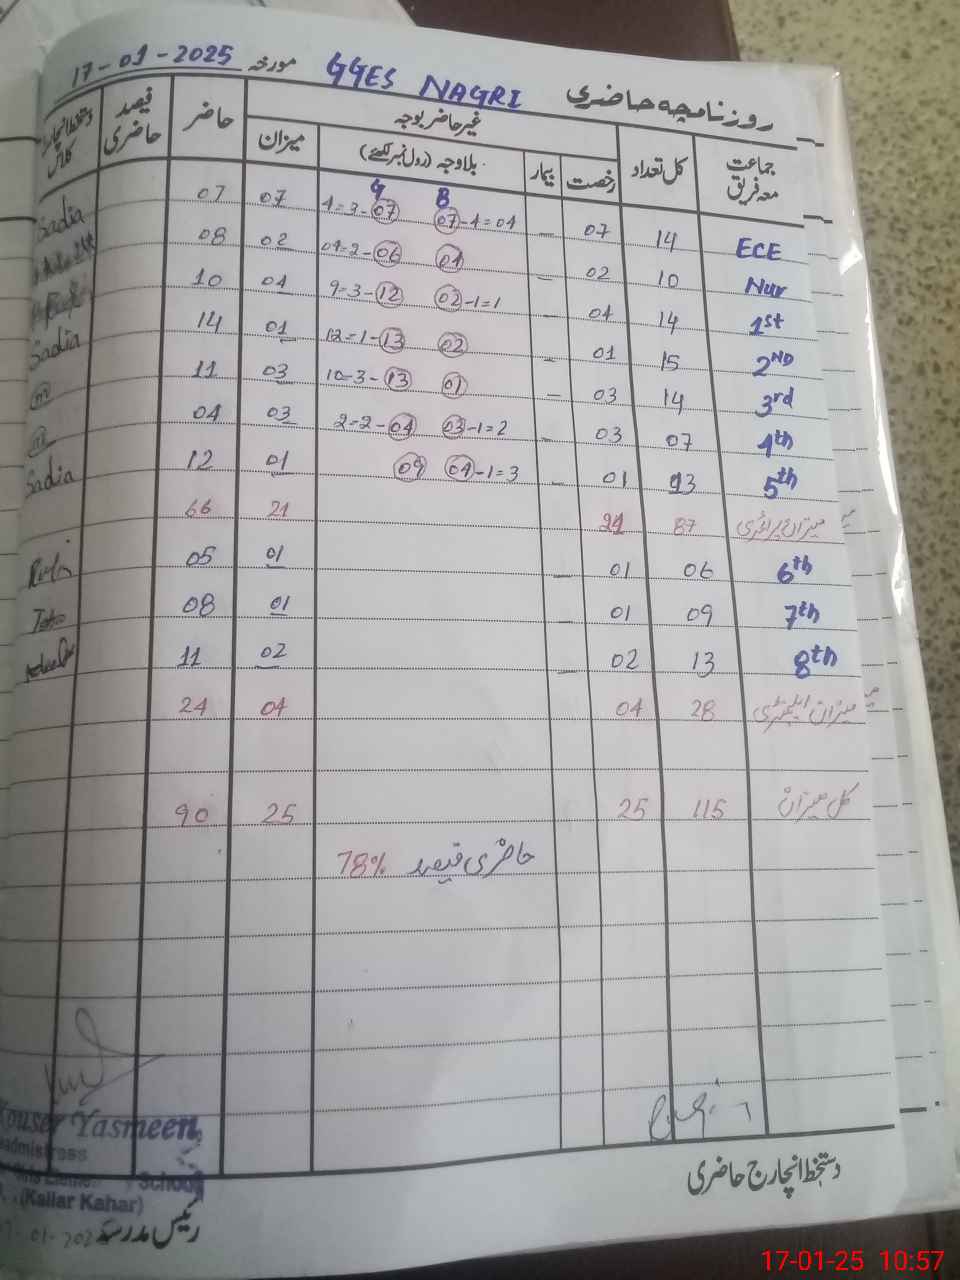 روزنامچہ حاضری GGES NAGRI مورخہ 17-01-2025
جماعت معہ فریق کل تعداد غیر حاضر بوجہ حاضر فیصد حاضری دستخط انچارج کلاس
رخصت بیمار بلاوجہ (رول نمبر لکھئے) میزان
G B
ECE 14 07 — 07-4=04 4=3-07 07 07 Sadia
Nur 10 02 — 04 04-2-06 02 08
1st 14 04 — 02-1=1 9=3-12 04 10
2ND 15 01 — 02 12=1-13 01 14 Sadia
3rd 14 03 — 01 10=3-13 03 11
4th 07 03 — 03-1=2 2=2-04 03 04
5th 13 01 — 04-1=3 09 01 12 Sadia
میزان پرائمری 87 21 21 66
6th 06 01 — 01 05
7th 09 01 — 01 08
8th 13 02 — 02 11
میزان ایلیمنٹری 28 04 04 24
کل میزان 115 25 25 90
حاضری فیصد 78%
Kouser Yasmeen
School
(Kallar Kahar)
دستخط انچارج حاضری
رئیس مدرسہ
17-01-25 10:57